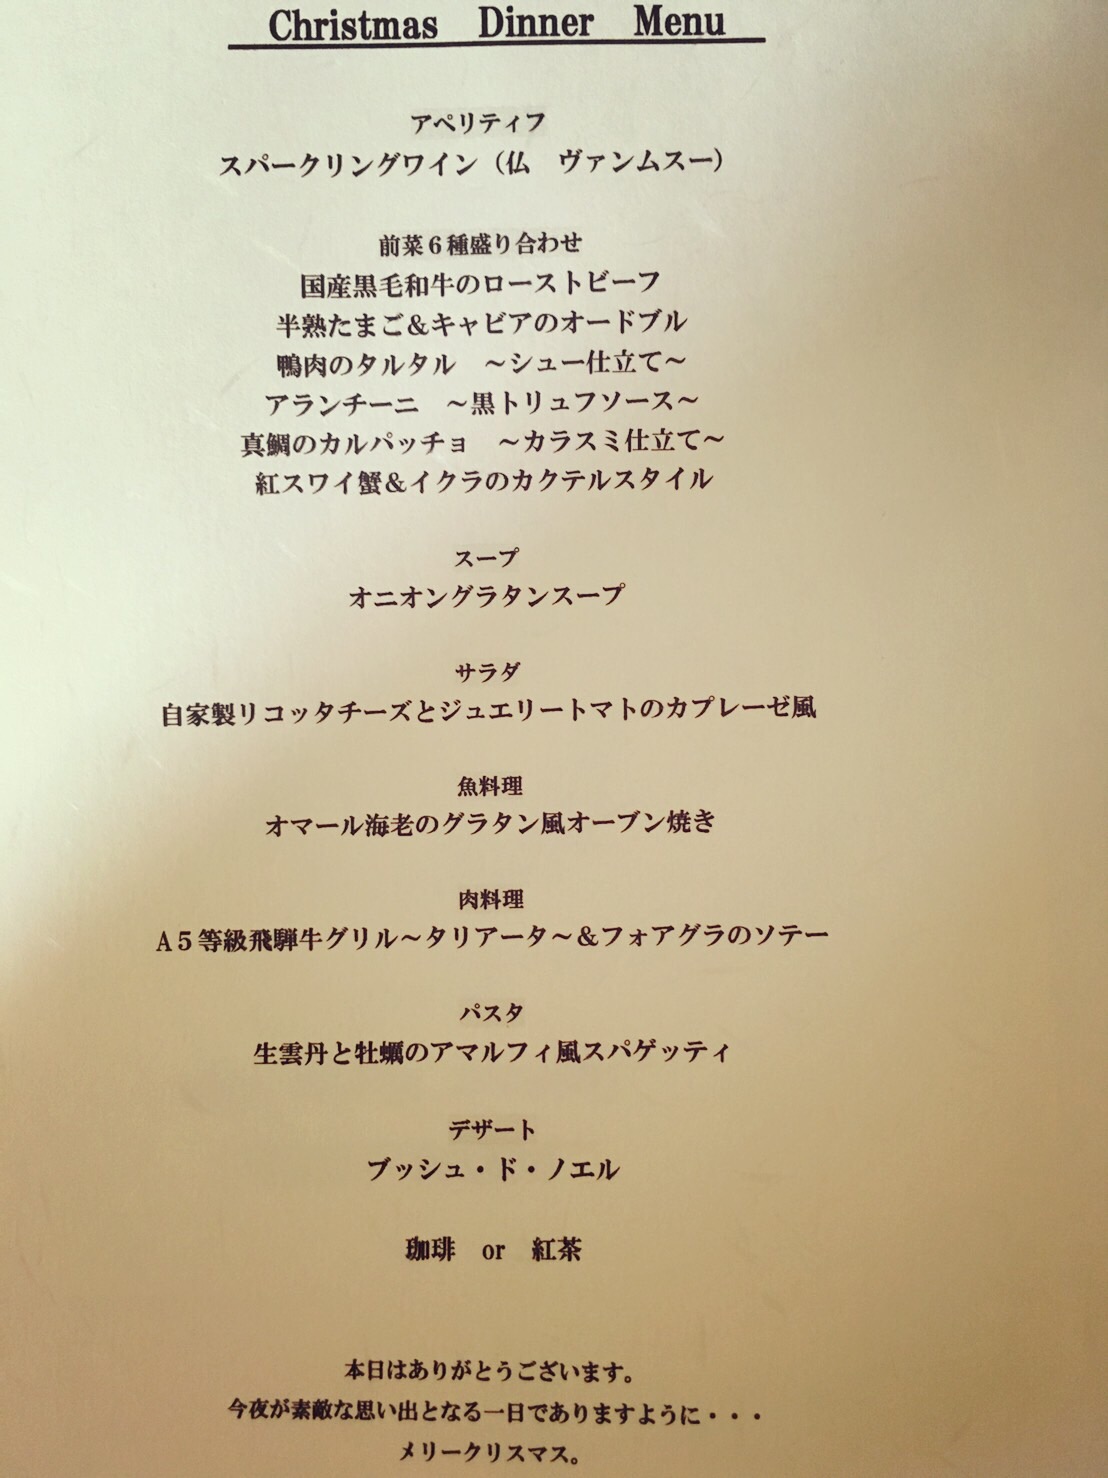 Christmas Dinner Menu
アペリティフ
スパークリングワイン（仏　ヴァンムスー）
前菜６種盛り合わせ
国産黒毛和牛のローストビーフ
半熟たまご＆キャビアのオードブル
鴨肉のタルタル　～シュー仕立て～
アランチーニ　～黒トリュフソース～
真鯛のカルパッチョ　～カラスミ仕立て～
紅スワイ蟹＆イクラのカクテルスタイル
スープ
オニオングラタンスープ
サラダ
自家製リコッタチーズとジュエリートマトのカプレーゼ風
魚料理
オマール海老のグラタン風オーブン焼き
肉料理
A５等級飛騨牛グリル～タリアータ～＆フォアグラのソテー
パスタ
生雲丹と牡蠣のアマルフィ風スパゲッティ
デザート
ブッシュ・ド・ノエル
珈琲　or　紅茶
本日はありがとうございます。
今夜が素敵な思い出となる一日でありますように・・・
メリークリスマス。